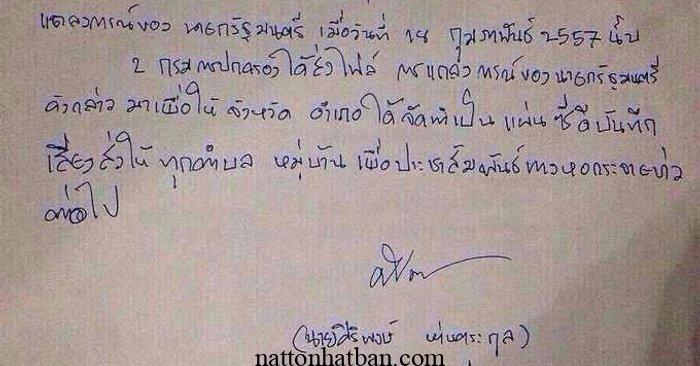 แถลงการณ์ของ นายกรัฐมนตรี เมื่อวันที่ 18 กุมภาพันธ์ 2557 นั้น
2 กรมการปกครองได้ส่งไฟล์ การแถลงการณ์ของนายกรัฐมนตรี
ดังกล่าว มาเพื่อให้ จังหวัด อำเภอ ได้จัดทำเป็น แผ่นซีดีบันทึก
เสียงส่งให้ ทุกตำบล หมู่บ้าน เพื่อประชาสัมพันธ์ทางหอกระจายข่าว
ต่อไป
(นายศิริพงษ์ ห่านตระกูล)
nattonhatban.com